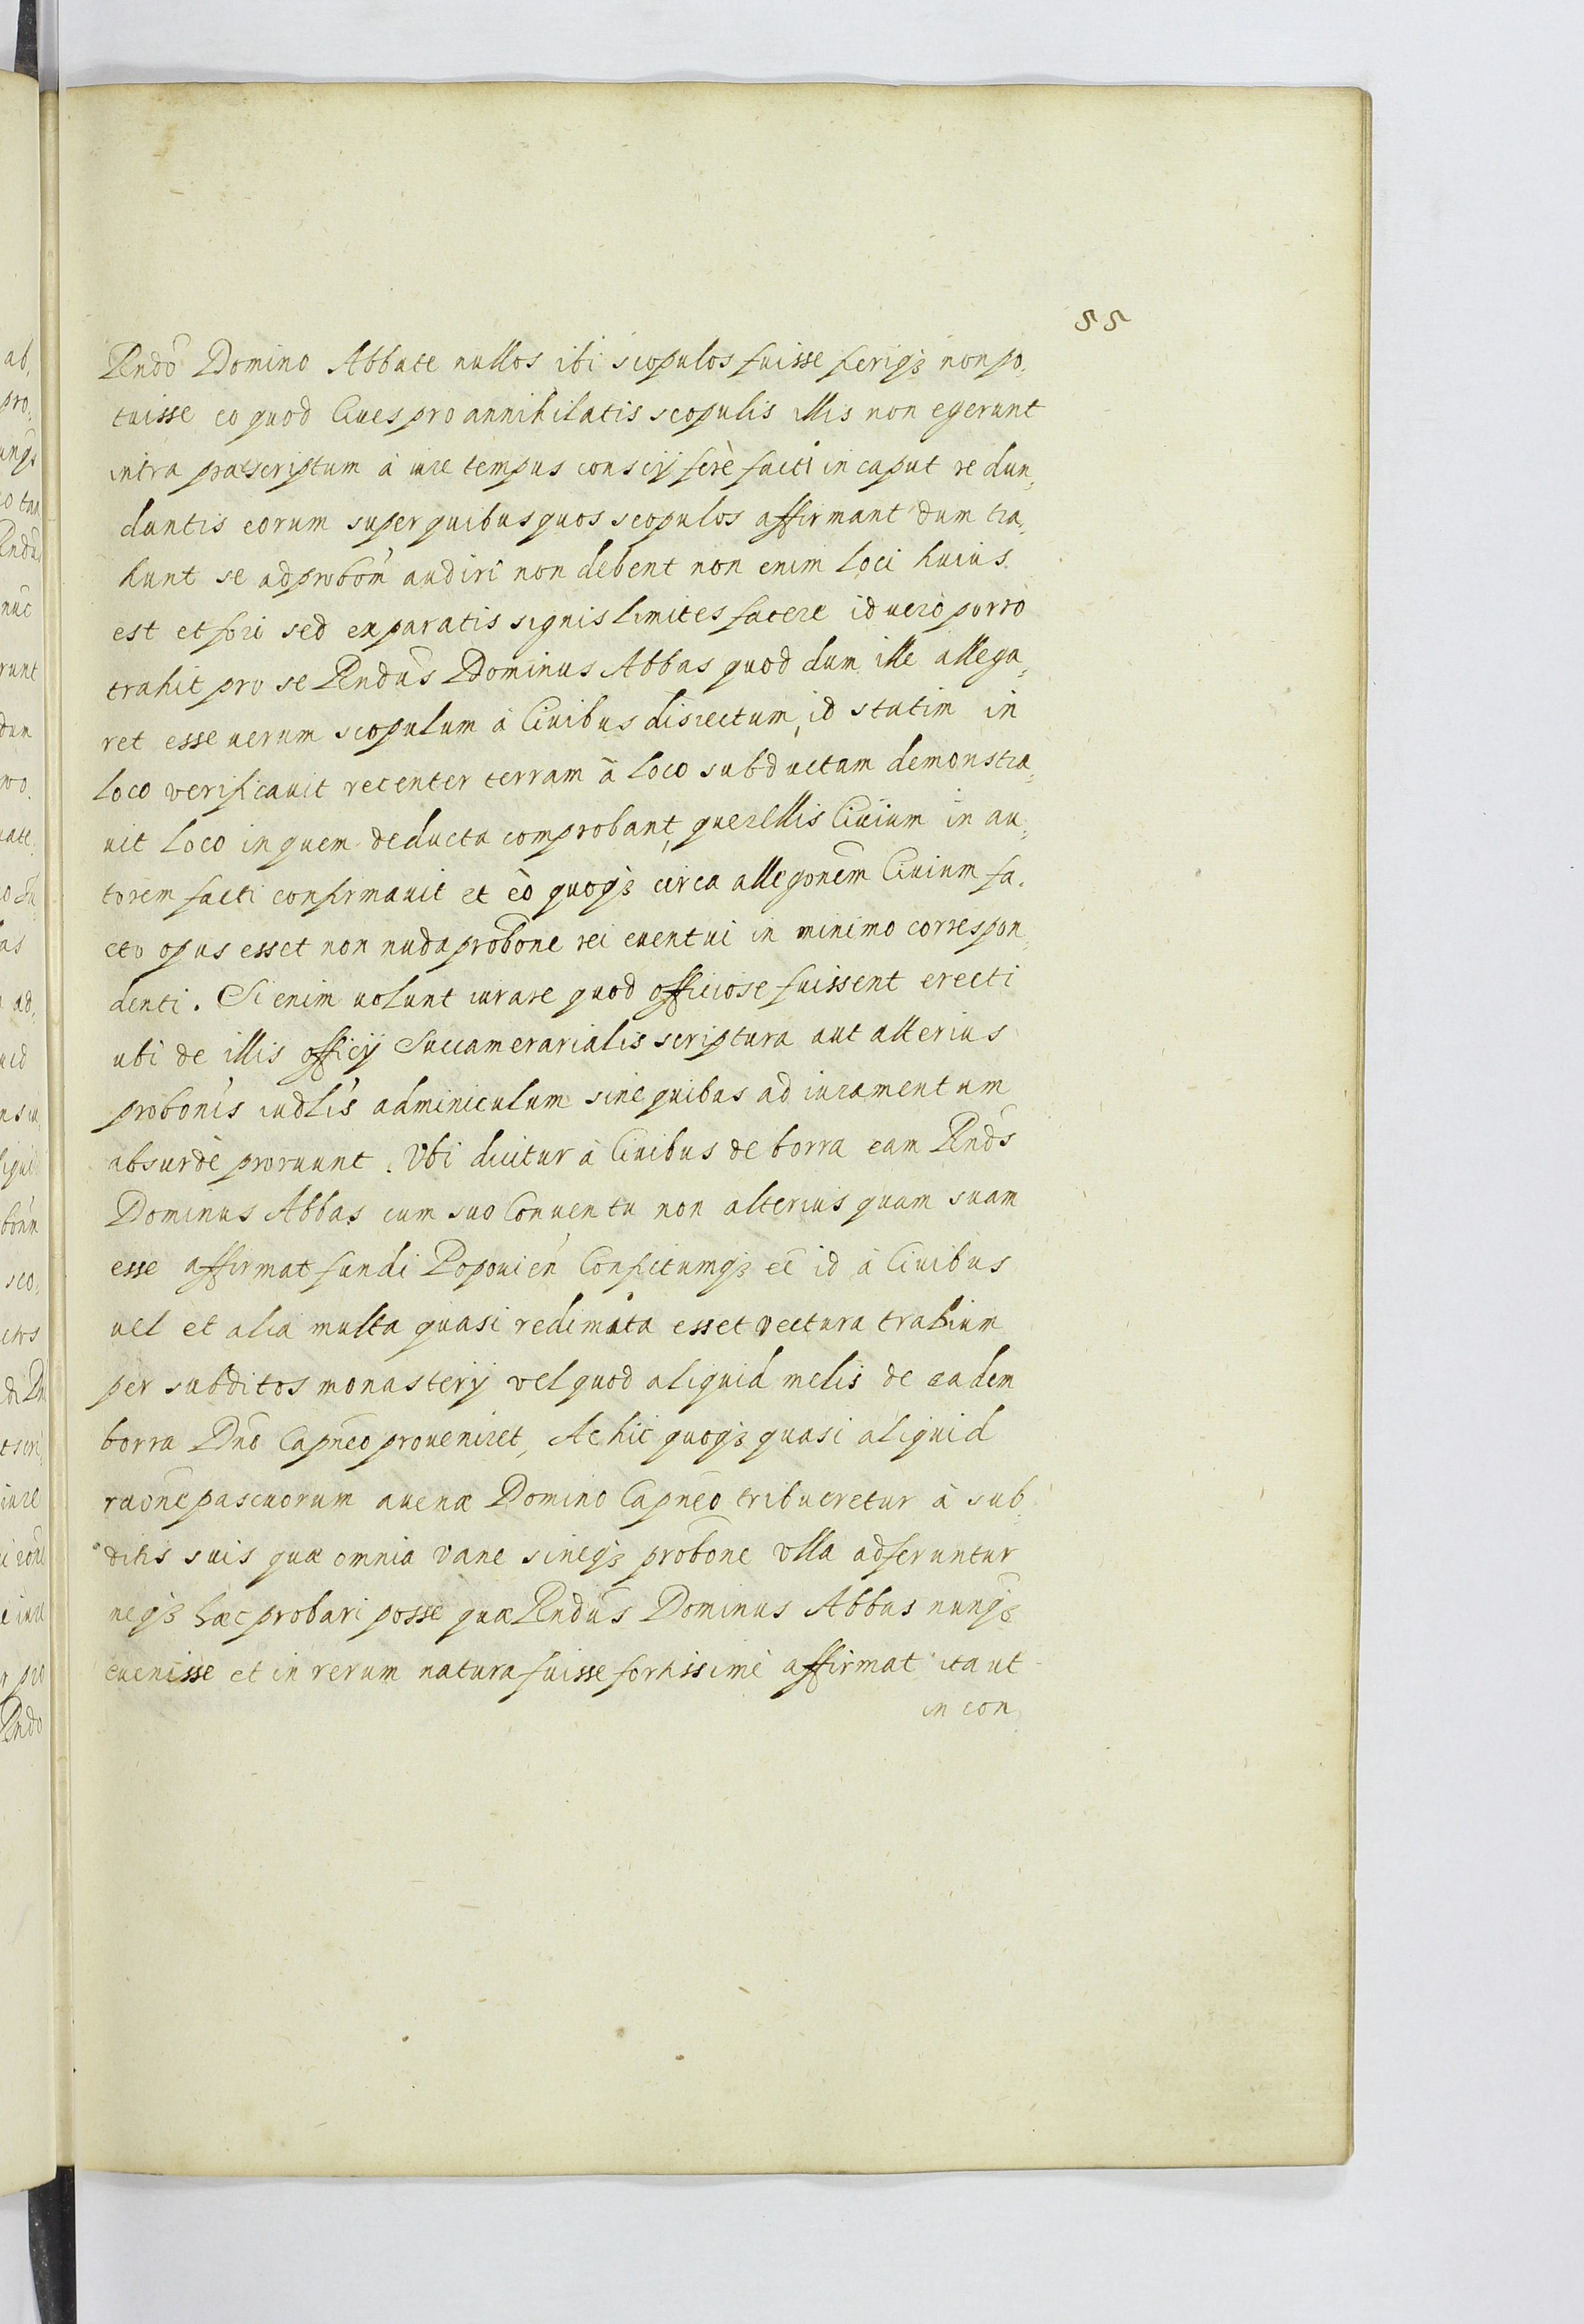 55
Rndo Domino Abbate nullos ibi scopulos fuisse ferigz non po,
tuisse eo quod Ciues pro annihilatis scopulis illis non egerunt
intra præscriptum à iure tempus conscij ferè facti in caput redun,
dantis eorum super quibus quos scopulos affirmant dum tra,
hunt se ad probom audiri non debent non enim loci huius
est et fori sed ex paratis signis limites facere id uero porro
trahit pro se Rndus Dominus Abbas quod dum ille allega,
ret esse uerum scopulum à Ciuibus disiectum, id statim in
loco verificauit recenter terram à loco subductam demonstra,
uit loco in quem deducta comprobant, querellis Ciuium in au,
torem facti confirmauit et eò quogz circa allegonem Ciuium fa,
cto opus esset non nuda probone rei euentui in minimo correspon,
denti. Si enim uolunt iurare quod officiose fuissent erecti
ubi de illis officij Succamerarialis scriptura aut alterius
probonis iudlis adminiculum sine quibus ad iuramentum
absurdè proruunt. Vbi dicitur à Ciuibus de borra eam Rnds
Dominus Abbas cum suo Conuentu non alterius quam suam
esse affirmat fundi Popouien Confictumgz eē id à Ciuibus
uel et alia multa quasi redimata esset vectura trabium
per subditos monasterij vel quod aliquid melis de eadem
borra Dno Capneo proueniret, Ac hic quogz quasi aliquid
raone pascuorum auenæ Domino Capneo tribueretur à sub,
ditis suis quæ omnia vane sinegz probone vlla adferuntur
negz hæc probari posse quæ Rndus Dominus Abbas nungz
euenisse et in rerum natura fuisse fortissimè affirmat ita ut
in con,